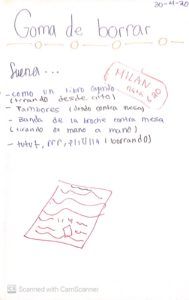 30-4-20
Goma de borrar
Suena...
MILAN
nata 620
- como un libro cayendo
(tirando desde alto)
- Tambores (dando contra mesa)
- Banda de la broche contra mesa
(tirando de mano a mano)
- tutut, rrr, (borrando)
Scanned with CamScanner